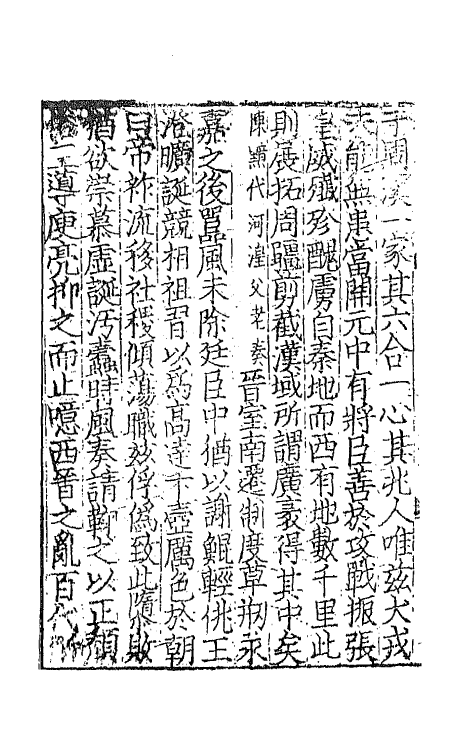 于周漢一家其六合一心其兆人唯兹犬戎
無患當開元中有將臣善於攻戰振張
皇威殲殄醜虜自秦地而西有地數千里此
則展拓周疆剪截漢域所謂廣袤得其中矣
陳黯代河湟父老奏晉室南遷制度草刱永
嘉之後囂風未除廷臣中猶以謝鯤輕佻王
澄曠誕競相祖習以為高達卞壼厲色於朝
曰帝祚流移社稷傾蕩職兹浮偽致此隳敗
猶欲崇慕虚誕汚蠧時風奏請鞫之以正頹
王導庾亮抑之而止噫西晉之亂百代